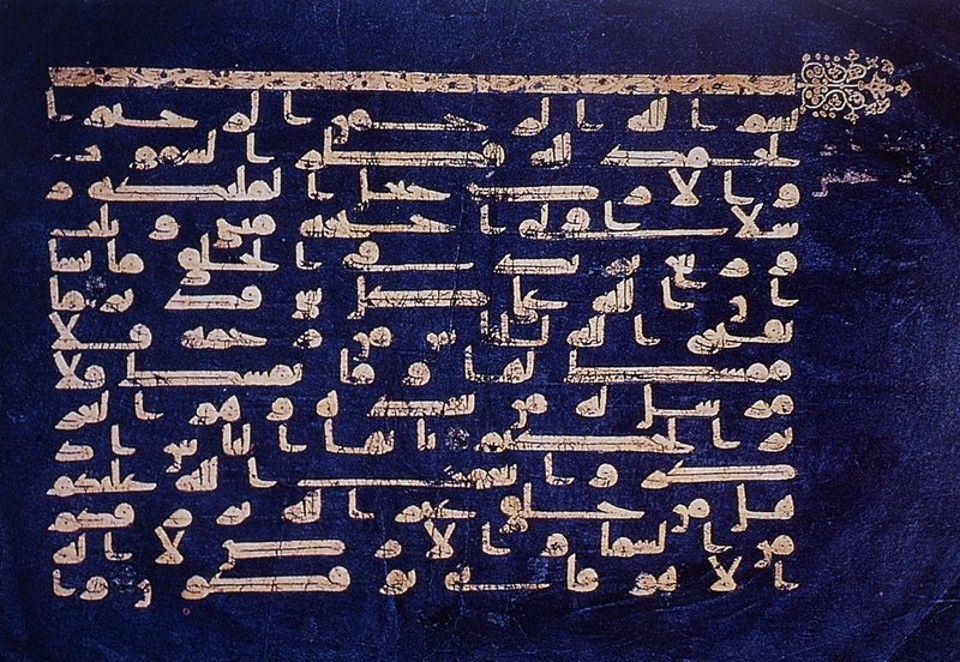 بسم الله الرحمن الرحيم ا
لحمد لله فطر السموت
و الارض جعل الملئكه ر
سلا اولى اجنحه مثنى و ثلث
و ربع يزيد في الخلق ما يشا
ان الله على كل شى قدير ما
يفتح الله للناس من رحمه فلا
ممسك لها و ما يمسك فلا
مرسل له من بعده و هو العز
يز الحكيم يايها الناس اذ
كروا نعمت الله عليكم
هل من خلق غير الله يرزقكم
من السما و الارض لا اله
الا هو فانى توفكون و ا